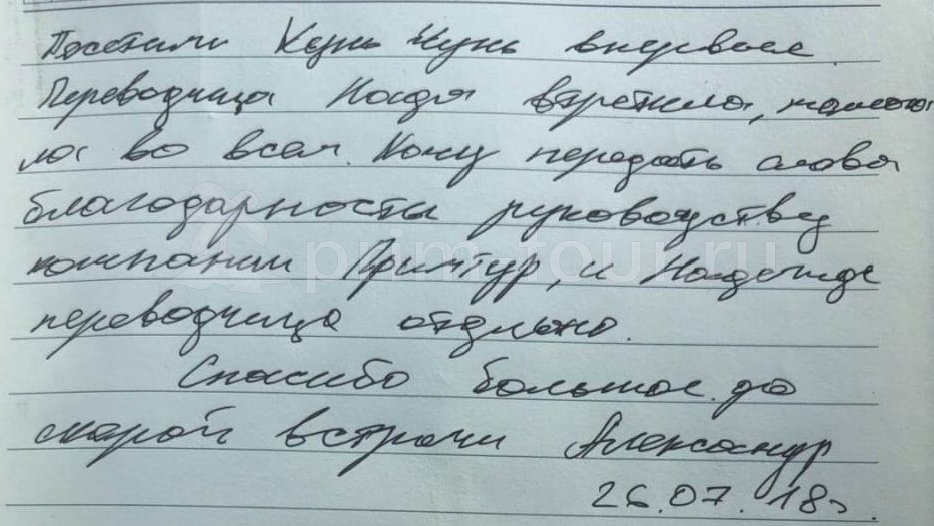 Посетили Хунь Чунь впервые.
Переводчица Надя встретила, помога
ла во всем. Хочу передать слова
благодарносты руководству
компании Примтур, и Надежде
переводчица отдльно.
Спасибо большое до
скорой встрачи Александр
26.07.18г
prim-tour.ru